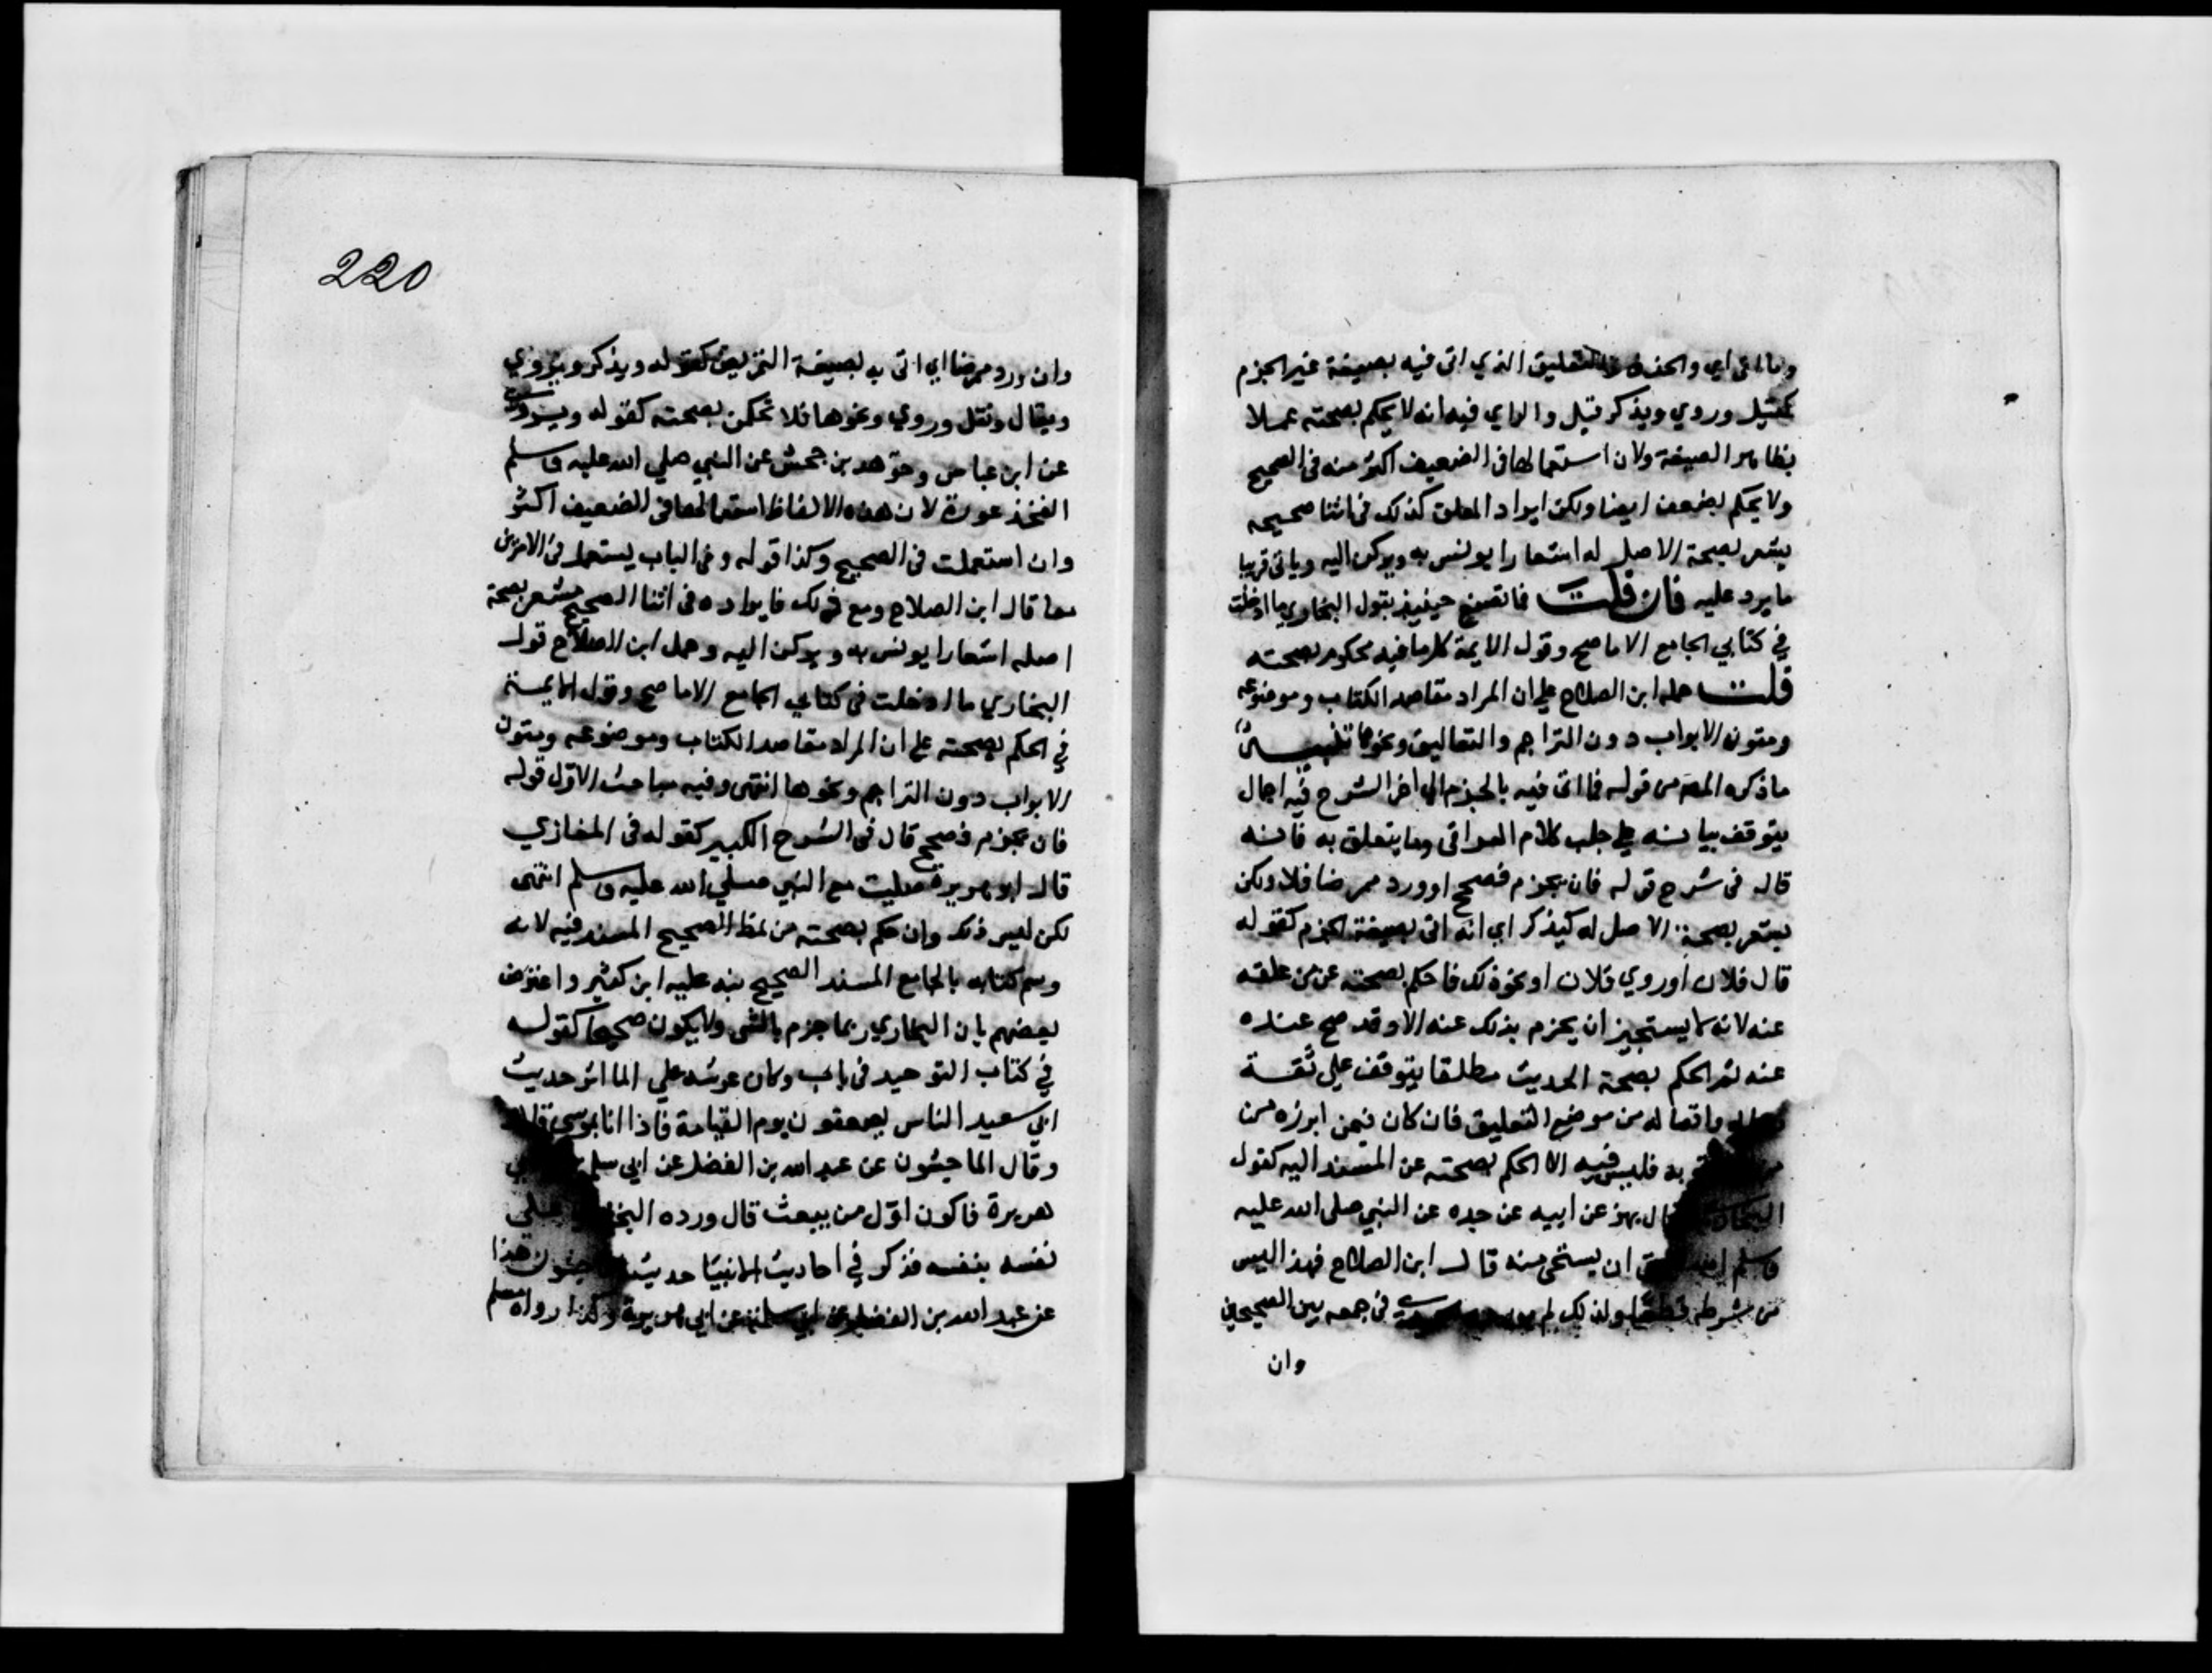 اي والحذف التعليق الذي اتى فيه بصيغة غير الجزم
كقيل وروي ويذكر قيل والراي فيه انه لا يحكم بصحته عملا
بظاهر الصيغة ولان استعمالها في الضعيف اكثر منه في الصحيح
ولا يحكم بضعف ايضا ولكن ايراد المعلق كذلك في اثنا صحيحه
يشعر بصحة الاصل له اشعارا يونس به ويركن اليه وياتي قريبا
ما يرد عليه فان قلت فما تصنع حينيذ بقول البخاري ما ادخلت
في كتابي الجامع الا ما صح وقول الايمة كلما فيه محكوم بصحته
قلت حمله ابن الصلاح على ان المراد مقاصد الكتاب وموضوعه
ومتون الابواب دون التراجم والتعاليق ونحوها تنبيه
ما ذكره المص من قوله فما اتى فيه بالجزم الى اخر الشرح فيه اجمال
يتوقف بيانه على جلب كلام العراقي وما يتعلق به فانه
قال في شرح قوله فان يجزم فصحح او ورد ممرضا فلا ولكن
يشعر بصحة الاصل له كيذكر اي انه اتى بصيغة الجزم كقوله
قال فلان او روي فلان او نحو ذلك فاحكم بصحته عن من علقه
عنه لانه لا يستجيز ان يجزم بذلك عنه الا وقد صح عنده
عنه ثم الحكم بصحة الحديث مطلقا يتوقف على ثقة
واتصاله من موضع التعليق فان كان فيمن ابرزه من
به فليس فيه الا الحكم بصحته عن المسند اليه كقول
قال بهز عن ابيه عن جده عن النبي صلى الله عليه
وسلم ان يستحى منه قال ابن الصلاح فهذا ليس
من شرطه قطعا ولذلك لم في جمعه بين الصحيحين
وان
220
وان ورد ممرضا اي اتى به بصيغة التمريض كقوله ويذكر ويروي
ويقال ونقل وروي ونحوها فلا تحكمن بصحته كقوله ويروى
عن ابن عباس وجرهد بن جحش عن النبي صلي الله عليه وسلم
الفخذ عورة لان هذه الالفاظ استعمالها في الضعيف اكثر
وان استعملت في الصحيح وكذا قوله وفي الباب يستعمل في الامرين
معا قال ابن الصلاح ومع ذلك فايراده في اثنا الصحيح مشعر بصحة
اصله اشعارا يونس به ويركن اليه وحمل ابن الصلاح قول
البخاري ما ادخلت في كتابي الجامع الا ما صح وقول الايمة
في الحكم بصحته على ان المراد مقاصد الكتاب وموضوعه ومتون
الابواب دون التراجم ونحوها انتهى وفيه مباحث الاول قوله
فان يجزم فصحح قال في الشرح الكبير كقوله في المغازي
قال ابو هريرة صليت مع النبي صلي الله عليه وسلم انتهى
لكن ليس ذلك وان حكم بصحته من نمط الصحيح المسند فيه لانه
وسم كتابه بالجامع المسند الصحيح نبه عليه ابن كثير واعترض
بعضهم بان البخاري ربما جزم بالشي ولا يكون صحيحا كقوله
في كتاب التوحيد في باب وكان عرشه علي الماء اثر حديث
ابي سعيد الناس يصعقون يوم القيامة فاذا انا بموسى
وقال الماجشون عن عبد الله بن الفضل عن ابي
هريرة فاكون اول من يبعث قال ورده علي
نفسه بنفسه فذكر في احاديث الانبيا حديث هذا
عن عبد الله بن الفضل عن ابي سلمة عن ابي هريرة وكذا رواه مسلم